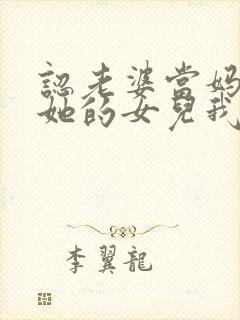 認老婆當媽
她的女兒我
李翼龍